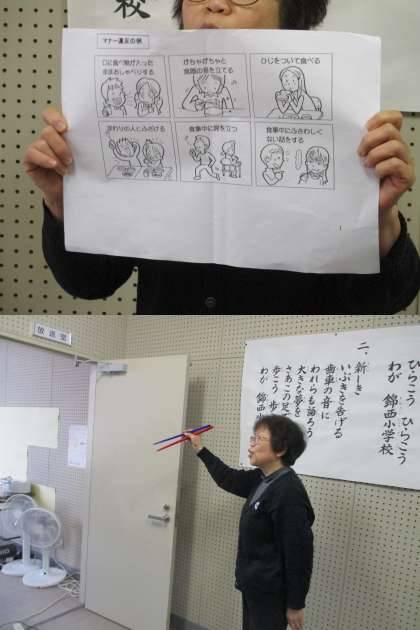 校
マナー違反の例
口に食べ物が入った
ままおしゃべりする
がちゃがちゃと
食器の音を立てる
ひじをついて食べる
まわりの人とふざける
食事中に席を立つ
食事中にふさわしく
ない話をする
1
放送室
ひらこう ひらこう
わが 錦西小学校
二、新しき
いぶきを告げる
歯車の音に
われらも語ろう
大きな夢を
さあこの足で
歩こう 歩
わが 錦西